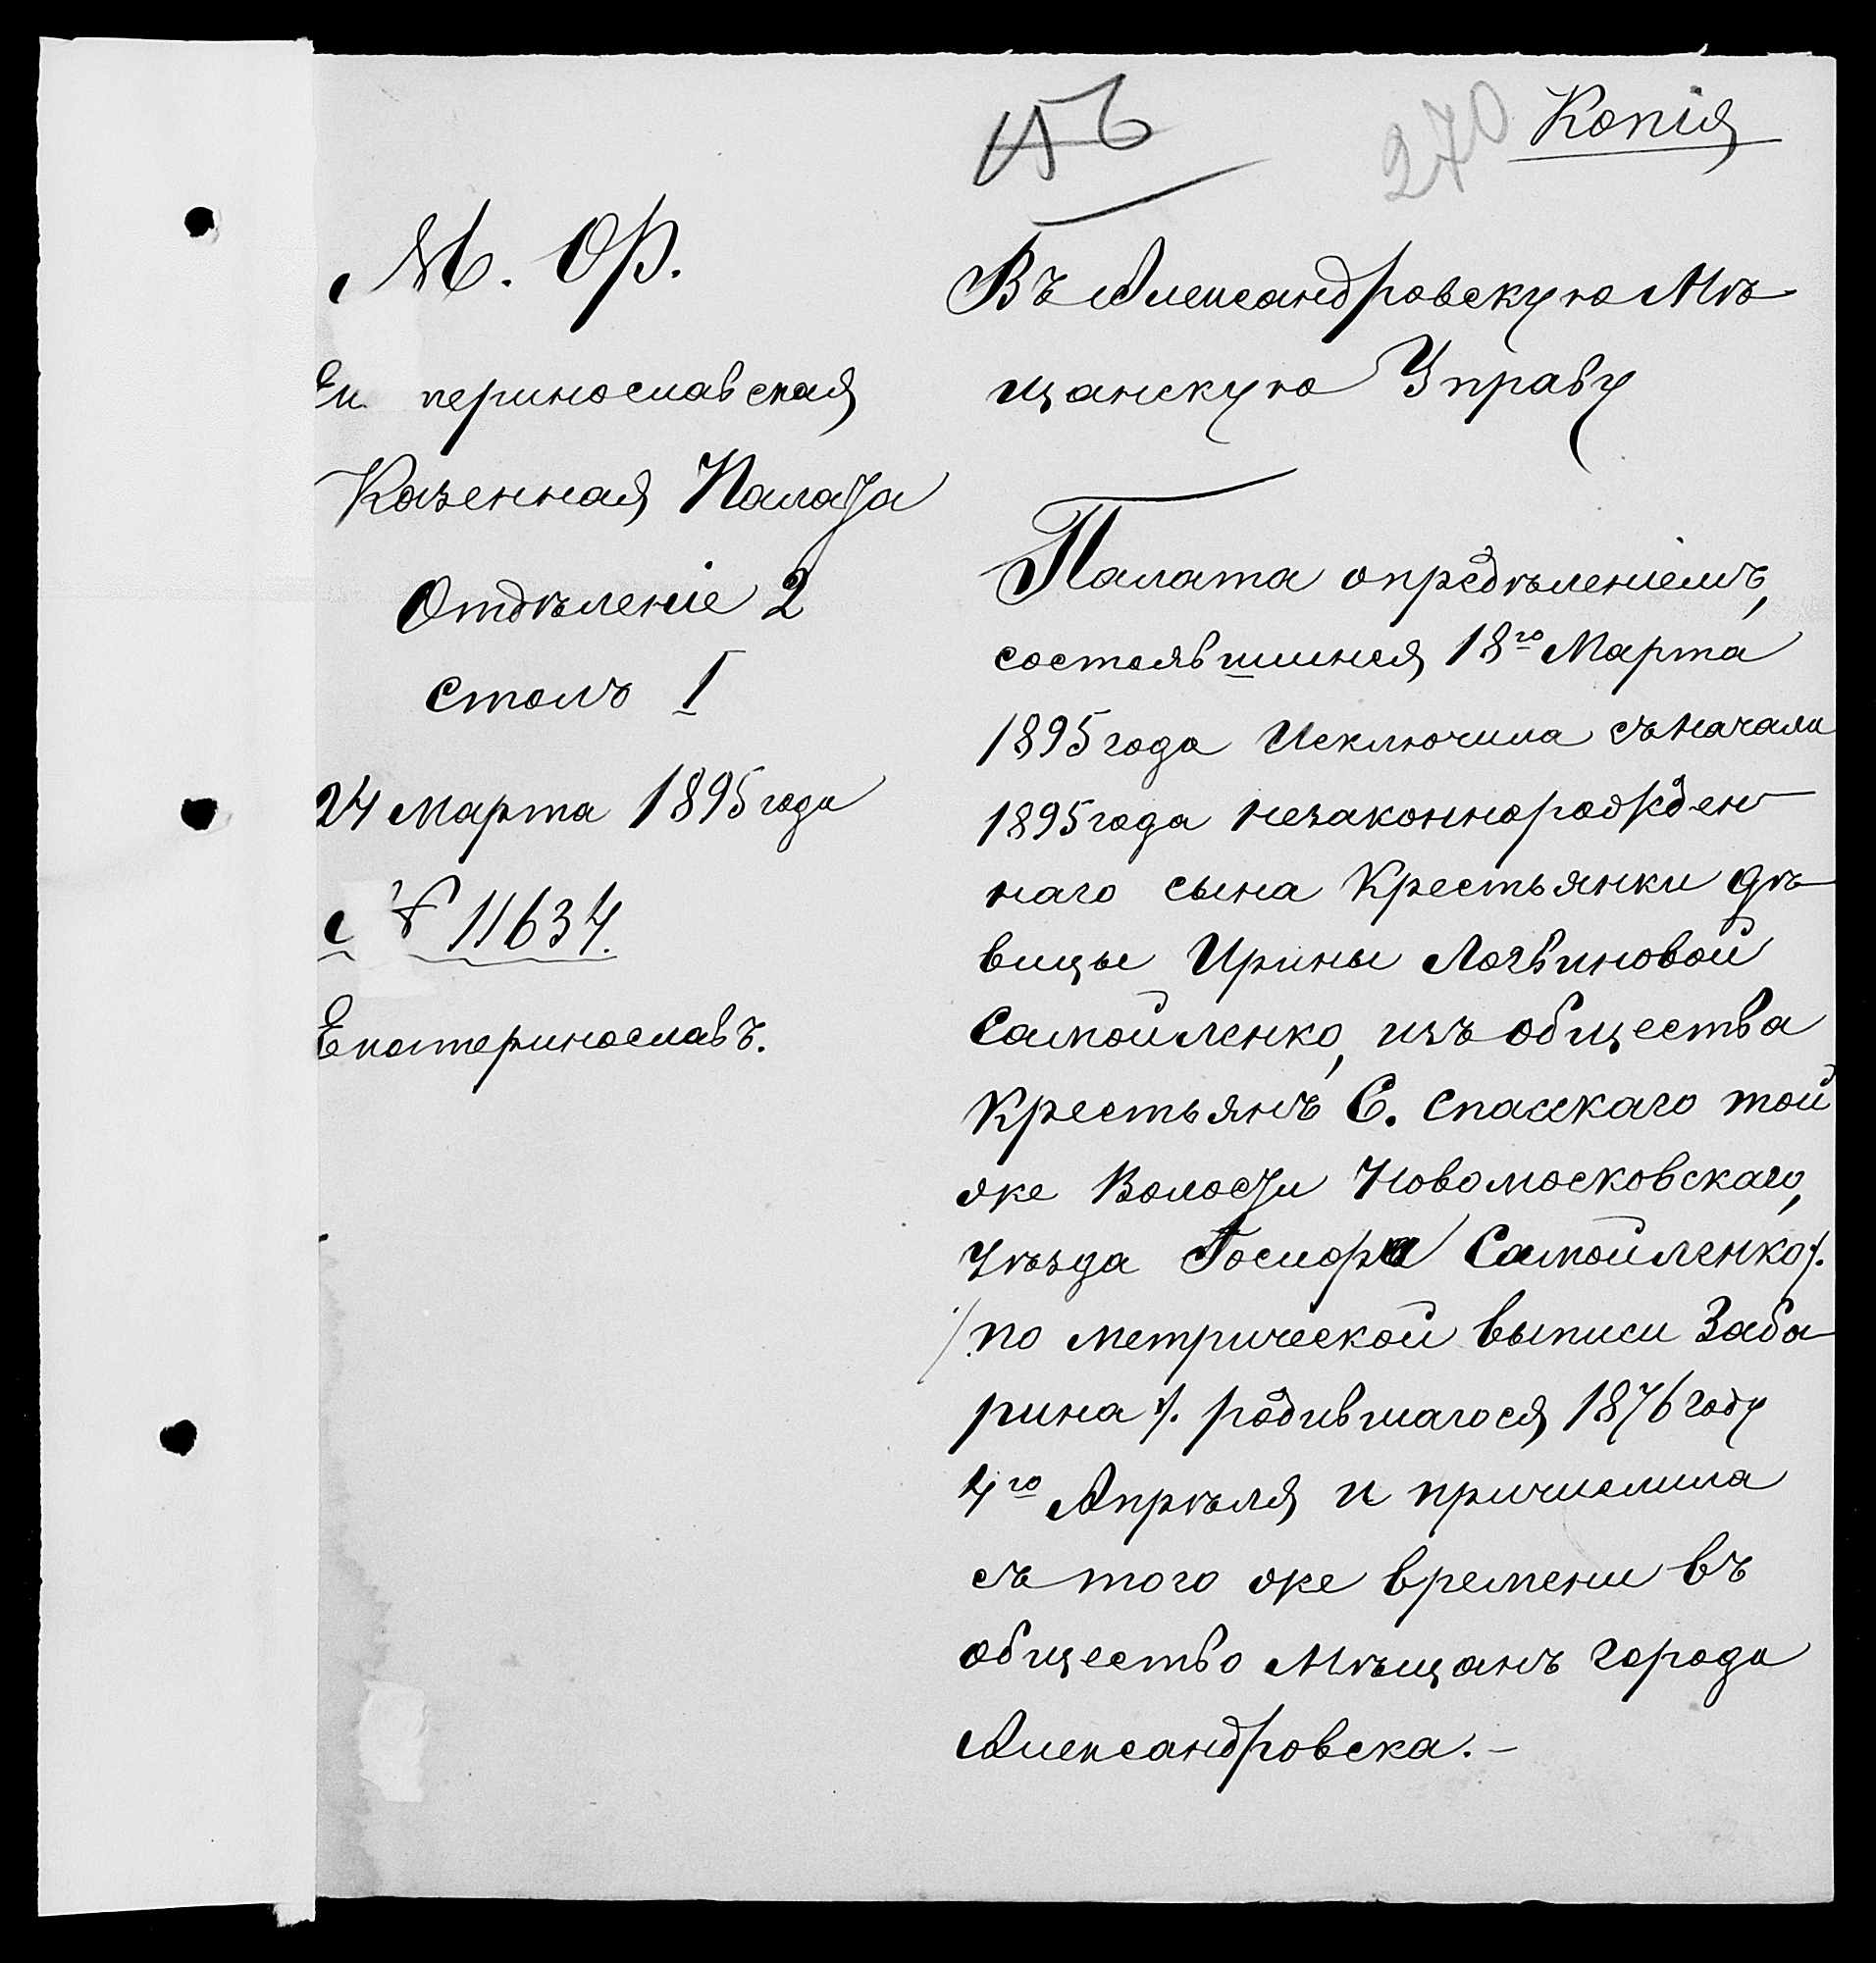 156
270
Копія
М. Ф.
Ек периносла­вская
Казенная Палата
Отдѣленіе 2
Столъ 1
24 Марта 1895 года
№ 11634.
Екатеринославъ.
Въ Александровскую Мѣ
щанскую Управу
Палата опредѣленіемъ,
состоявшимся 18го Марта
1895 года Исключила съ начала
1895 года незаконнорожден
наго сына Крестьянки дѣ
вицы Ирины Логвиновой
Самойленко, изъ общества
Крестьянъ С. Спасскаго той
же Волости Новомосковскаго,
Уѣзда Іосифа Самойленко /.
/. по метрической выписи Заба
рина /. родившагося 1876 году
4го Апрѣля и причислила
съ того же времени въ
общество Мѣщанъ города
Александровска.-